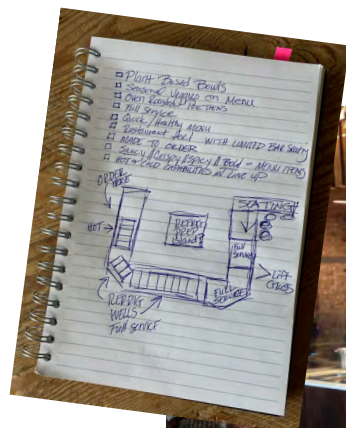 □ Plant Based Bowls
□ Seasonal Veggies on Menu
□ Oven Roasted
□ Full Service
□ Quick / Healthy Menu
□ Restaurant feel with limited Bar Seating
□ Made to Order
□ Saucy // Crispy // Spicy // Bold = Menu Items
□ Hot & Cold capabilities in line up
Order Here
Seating
Hot →
Refrig Prep Island
Full Service
Lift Glass
Refrig Wells
Full Service
Full Service